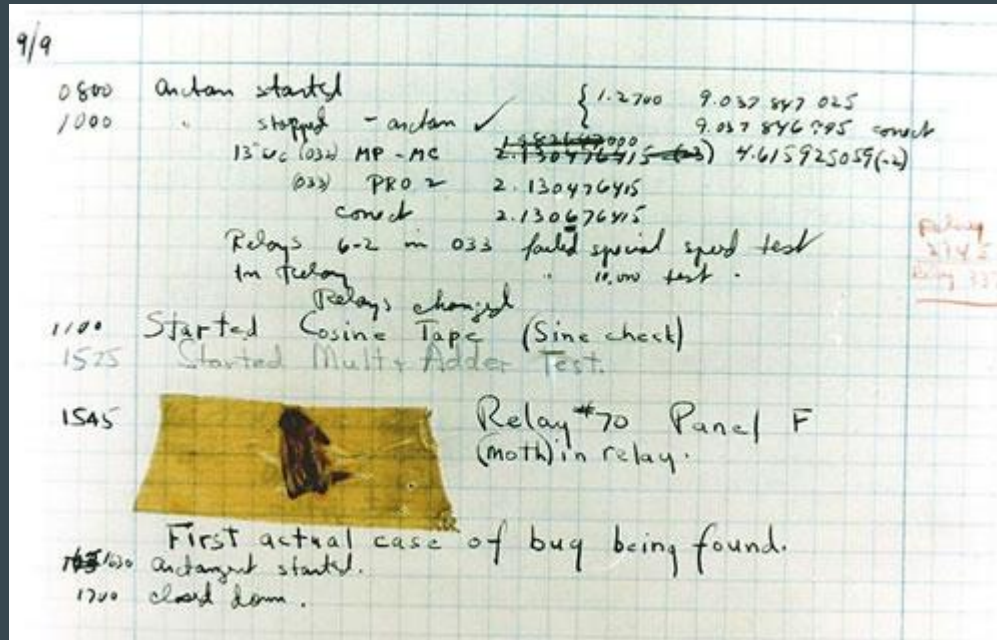 9/9
0800 antan started { 1.2700 9.037 847 025
1000 " stopped - antan ✓ 9.037 846 795 conect
13"uc (032) MP - MC 2.130476415 (-3) 4.615925059(-2)
(033) PRO 2 2.130476415
conect 2.130676415
Relays 6-2 in 033 failed special speed test
In Relay " 10,000 test .
Relays changed
1100 Started Cosine Tape (Sine check)
1525 Started Mult + Adder Test.
1545 Relay #70 Panel F
(moth) in relay.
First actual case of bug being found.
1630 antangent started.
1700 closed down .
Relay
2145
Relay 337